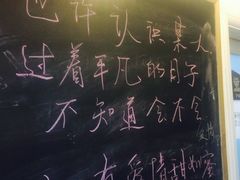 也许认识某人
过着平凡的日子
不知道会不会
有爱情甜如蜜